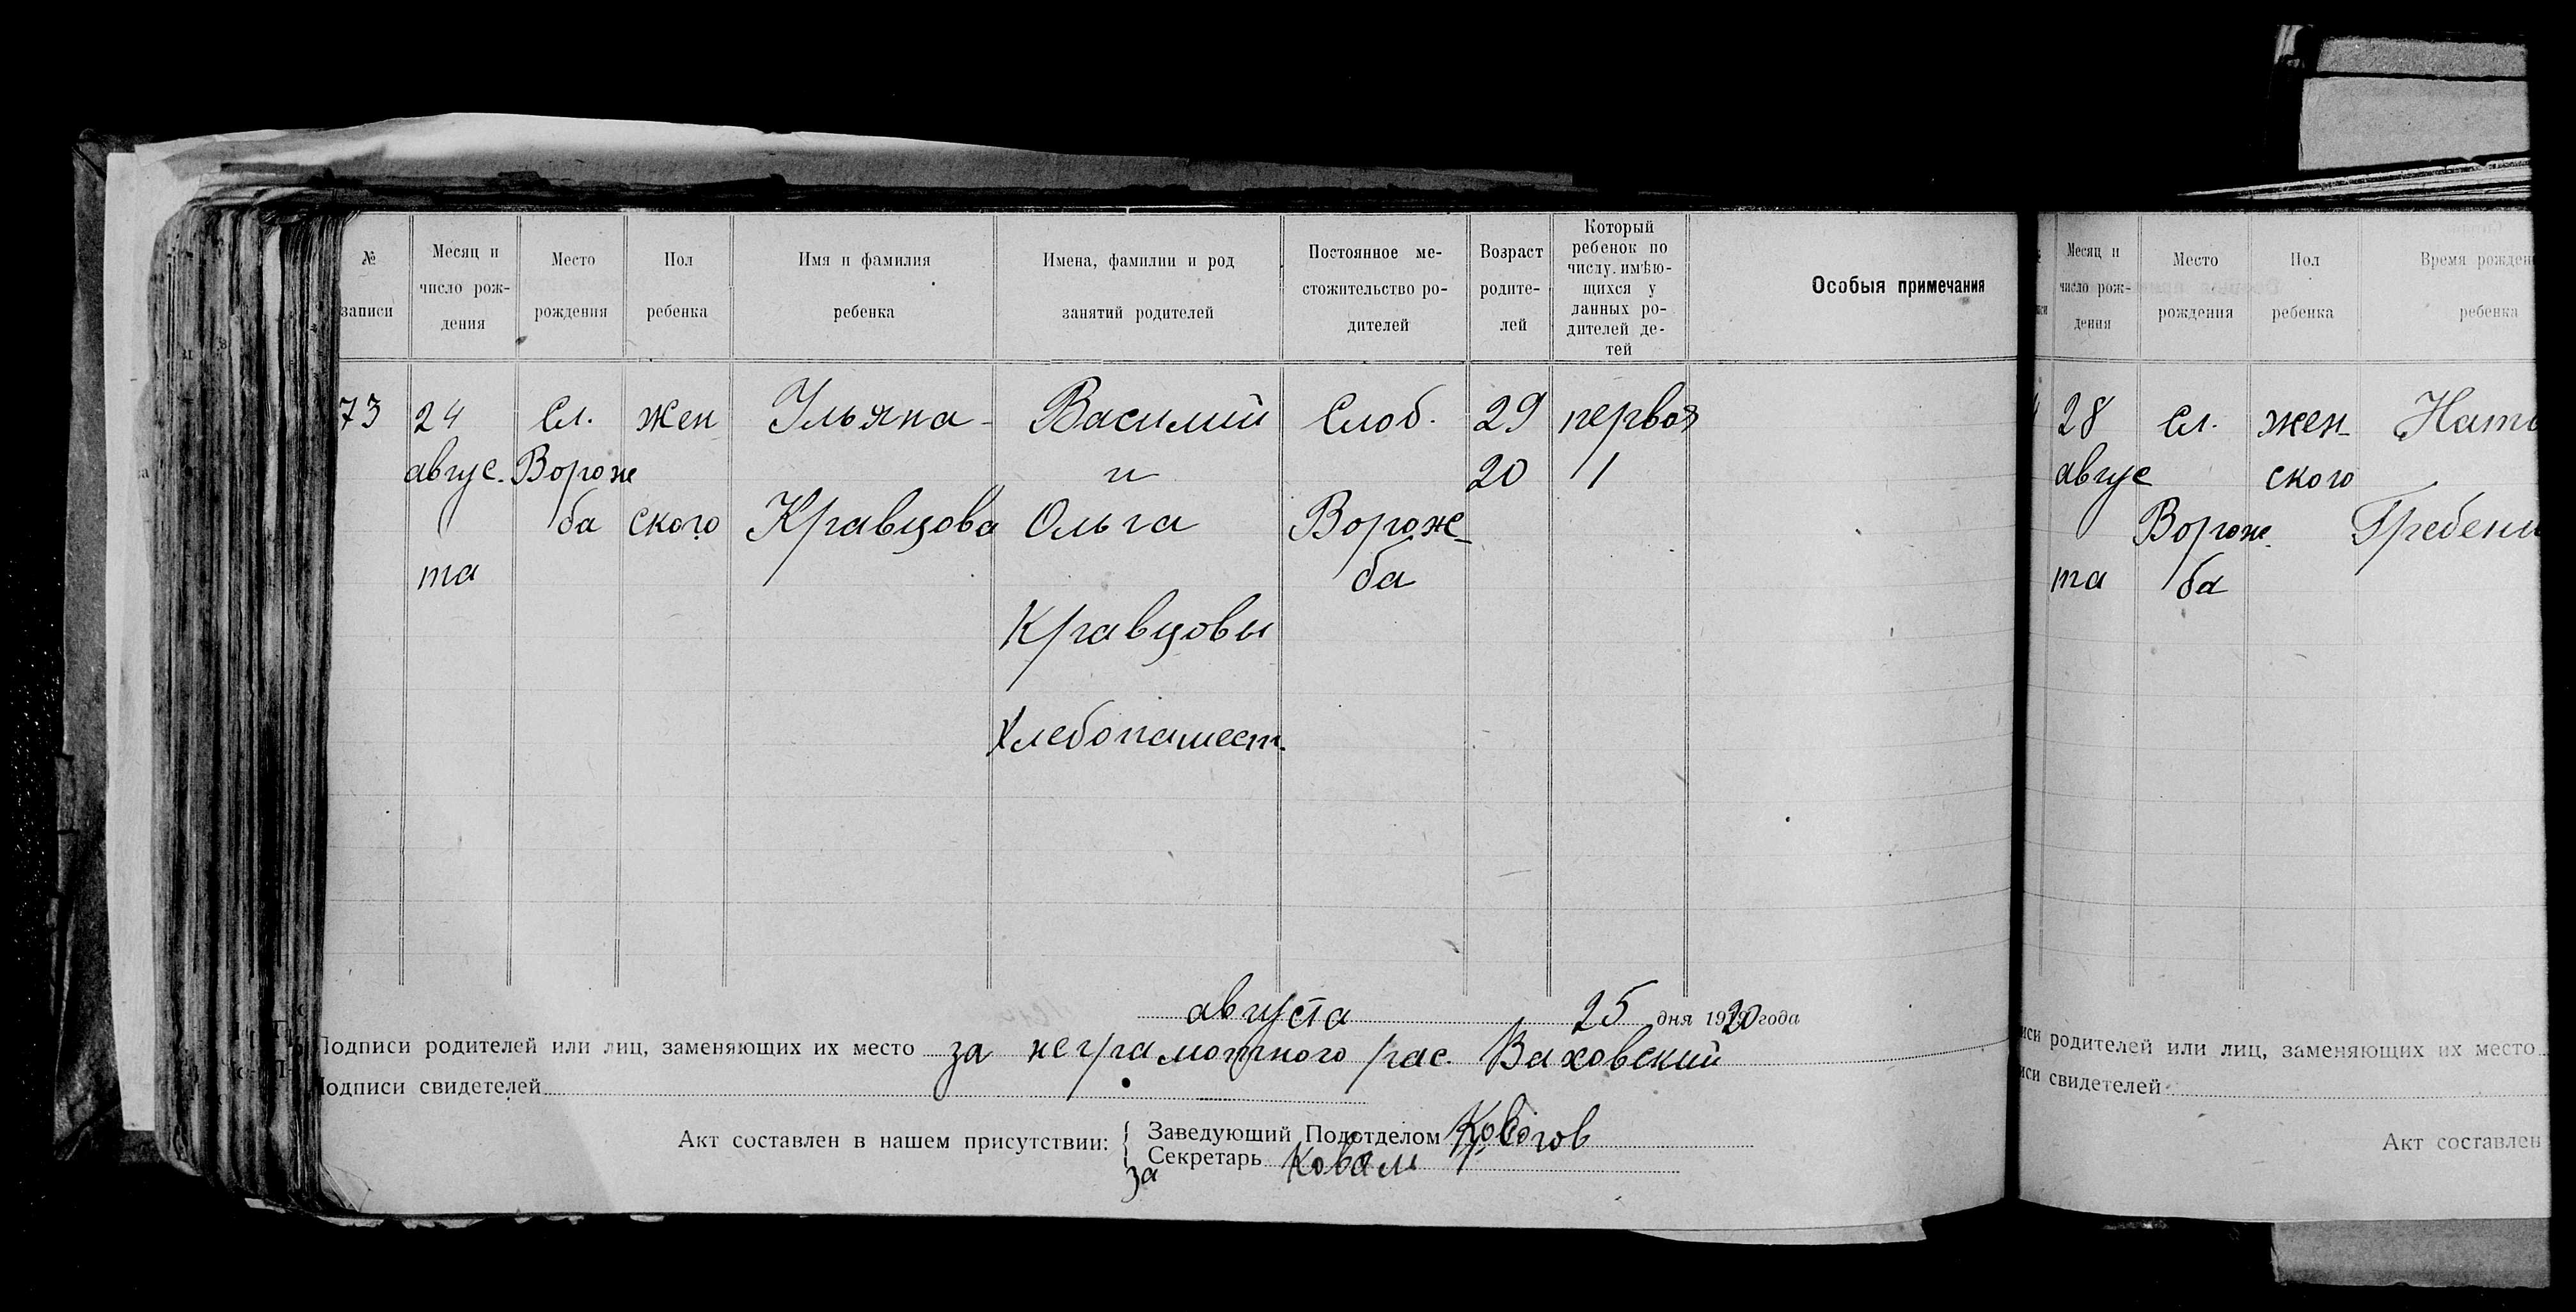 № записи
Месяц и число рож-дения
Место рождения
Пол ребенка
Имя и фамилия ребенка
Имена, фамилии и род занятий родителей
Постоянное ме-стожительство ро-дителей
Возраст родите-лей
Который ребенок по числу. имѣю-щихся у данных ро-дителей де-тей
Особыя примечания
73
24 авгус. та
Сл. Вороже ба
жен ского
Ульяна - Кравцова
Василий
и
Ольга
Кравцовы
Хлебопашест.
Слоб. Ворож-ба
29
20
первоя
1
августа 25 дня 1920 года
Подписи родителей или лиц, заменяющих их место за неграмотного рас. Ваховский
Подписи свидетелей
Акт составлен в нашем присутствии:
Заведующий Подотделом
за Секретарь Коваль
Месяц и число рож-дения
Место рождения
Пол ребенка
Время рожден
ребенка
28 авгус та
Сл. Вороже. ба
жен-ского
Ната
Гребени
иси родителей или лиц, заменяющих их место
иси свидетелей
Акт составлен